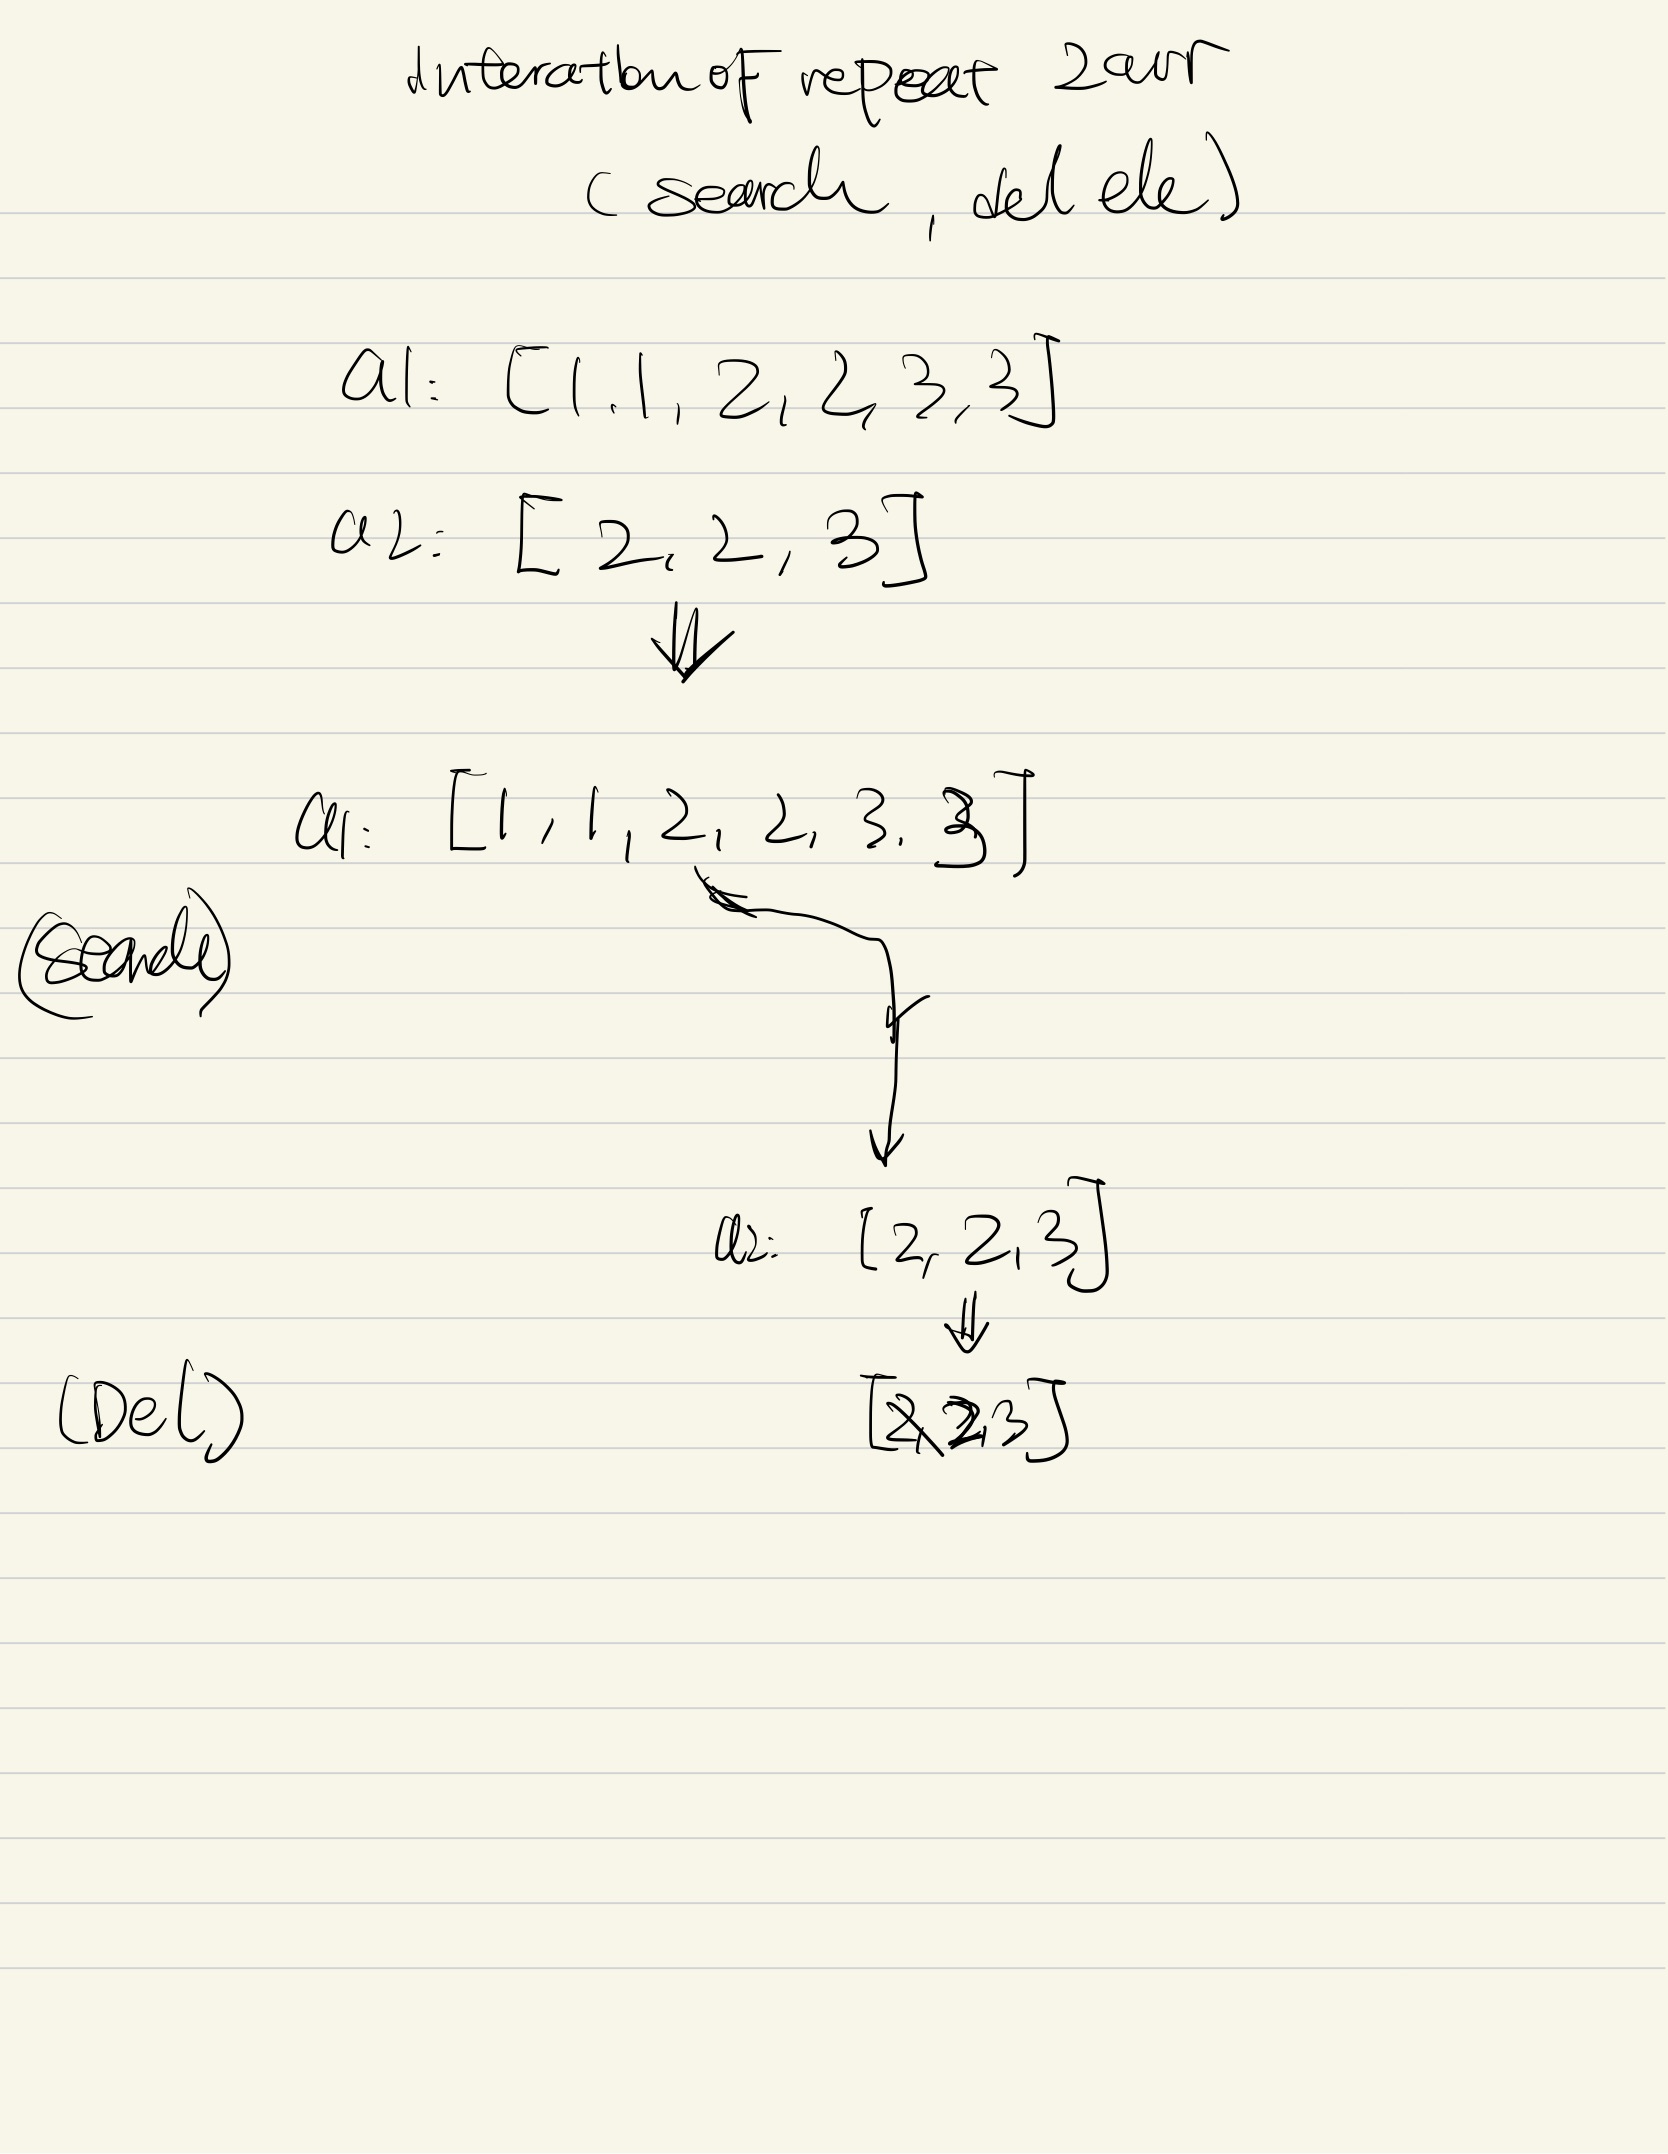 Interation of repeat 2 arr
(search, delete)
a1: [1,1,2,2,3,3]
a2: [2,2,3]
a1: [1,1,2,2,3,3]
(Search)
a2: [2,2,3]
(Del) [2,2,3]